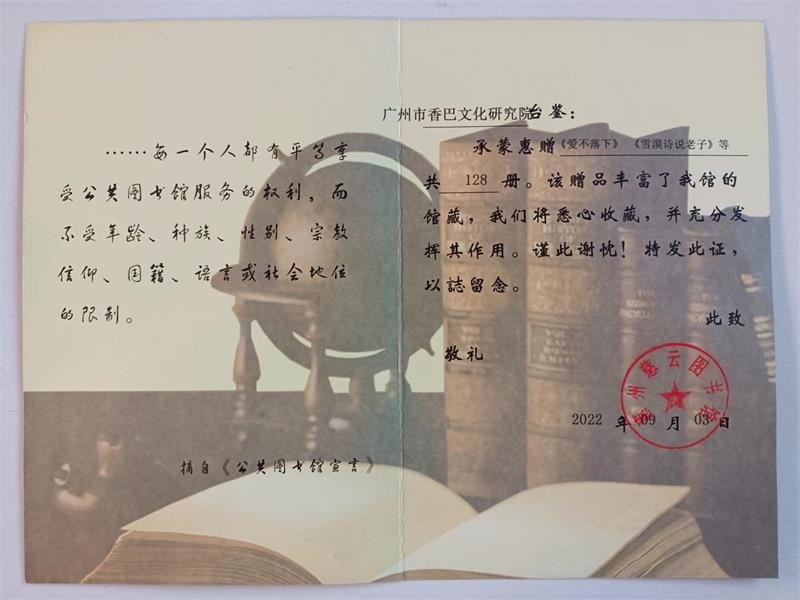 ……每一个人都有平等享
受公共图书馆服务的权利，而
不受年龄、种族、性别、宗教
信仰、国籍、语言或社会地位
的限制。
摘自《公共图书馆宣言》
广州市香巴文化研究院台鉴：
承蒙惠赠《爱不落下》《雪漠诗说老子》等
共 128 册。该赠品丰富了我馆的
馆藏，我们将悉心收藏，并充分发
挥其作用。谨此谢忱！特发此证，
以誌留念。
此致
敬礼
州慈云图书馆
2022 年 09 月 03 日